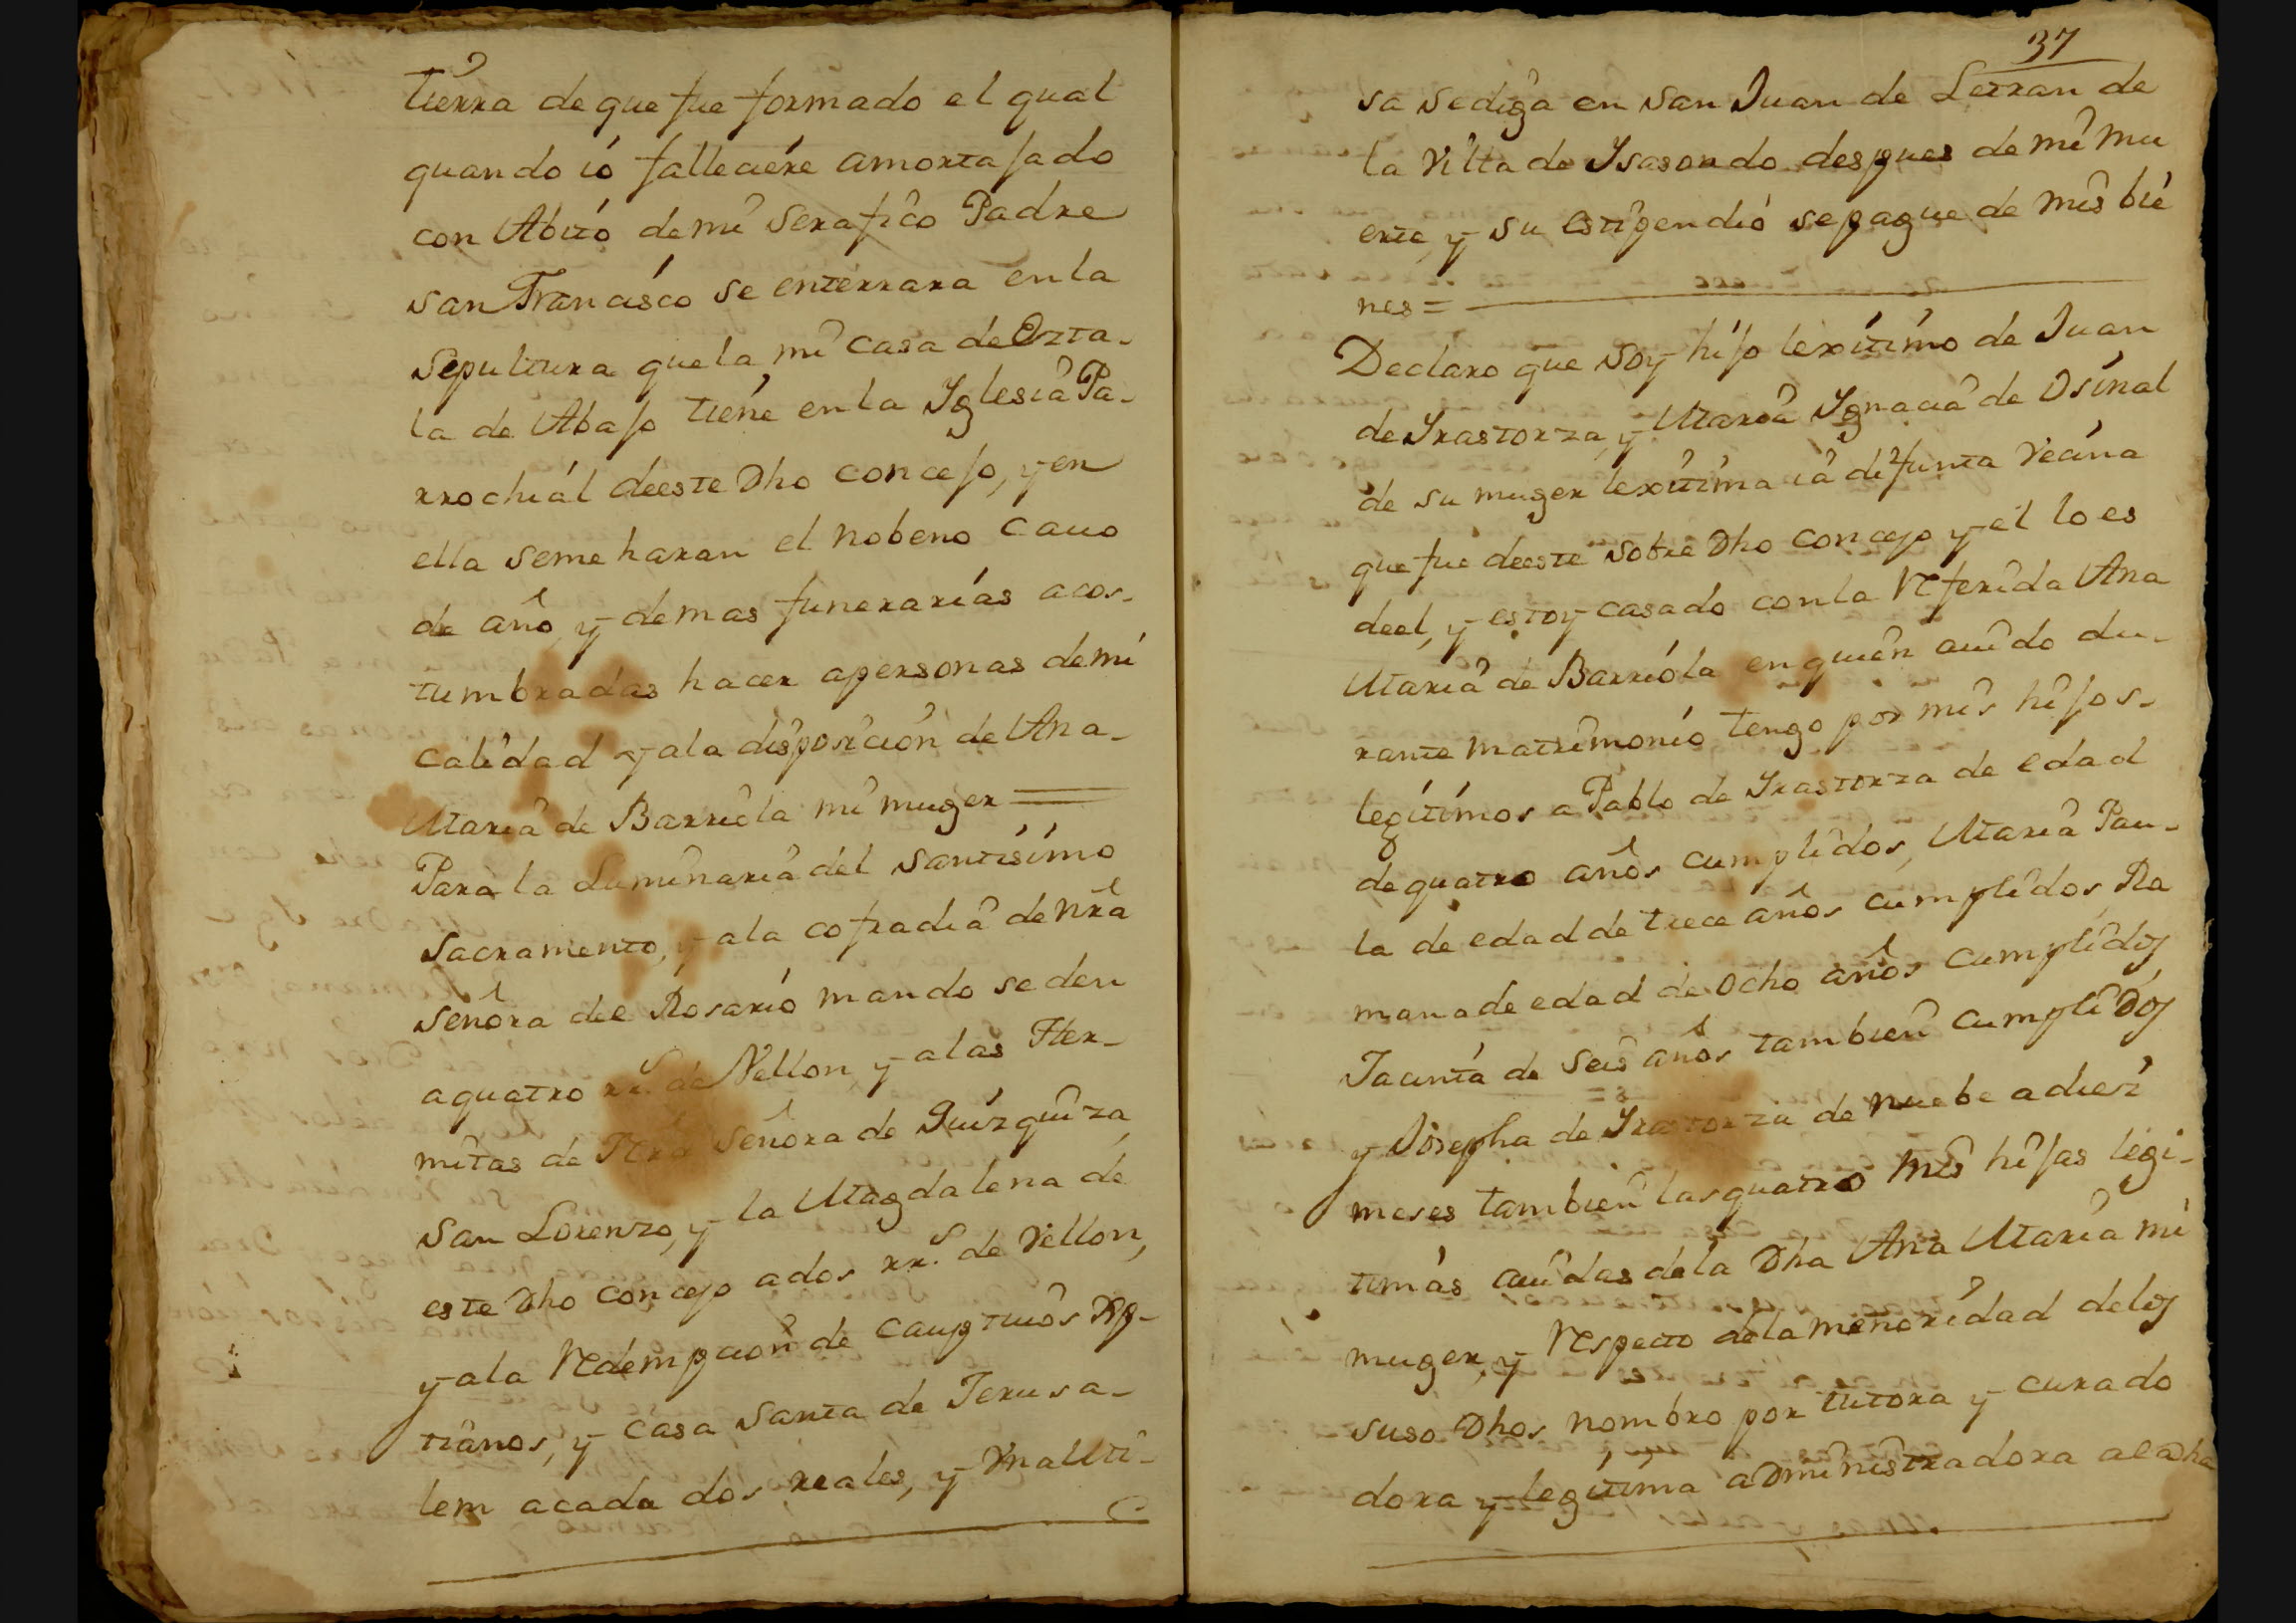 tierra de que fue formado el qual
quando io falleciere amortajado
con Abito de mi Serafico Padre
san Francisco se enterrara en la
sepultura que la mi casa de Ozta-
la de Abajo tiene en la Yglesia Pa-
rrochial de este Dho concejo, y en
ella seme haran el nobeno cauo
de año, y demas funerarias acos-
tumbradas hacer apersonas demi
calidad y ala disposicion de Ana-
Maria de Barriola mi muger =
Para la Luminaria del santisimo
sacramento, y ala cofradia de nra
señora del Rosario mando se den
aquatro rs. de Vellon, y alas Her-
mitas de Nra señora de Guizquiza
San Lorenzo, y la Magdalena de
este Dho concejo ados rrs. de vellon,
y ala redempcion de cauptiuos xp-
tianos, y Casa Santa de Jerusa-
lem acada dos reales, y vna Mi-
37
sa se diga en San Juan de Letran de
la villa de Ysasondo despues de mi mu
erte, y su estipendio sepague de mis bie
nes =
Declaro que soy hijo lexitimo de Juan
de Yrastorza, y Maria Ygnacia de Osinal
de su muger lexitima ia difunta vecina
que fue deeste sobre Dho concejo y el lo es
deel, y estoy casado con la referida Ana
Maria de Barriola en quien auido du-
rante matrimonio tengo por mis hijos-
legitimos a Pablo de Yrastorza de edad
de quatro años cumplidos, Maria Pau-
la de edad de trece años cumplidos, Ra
mana de edad de ocho años cumplidos
Jacinta de seis años tambien cumplidos
y Josepha de Yrastorza de nuebe a diez
meses tambien las quatro mis hijas legi-
timas auidas dela Dha Ana Maria mi
muger, y respecto dela menoridad delos
suso Dhos nombro por tutora y curado
dora y legitima administradora ala Dha